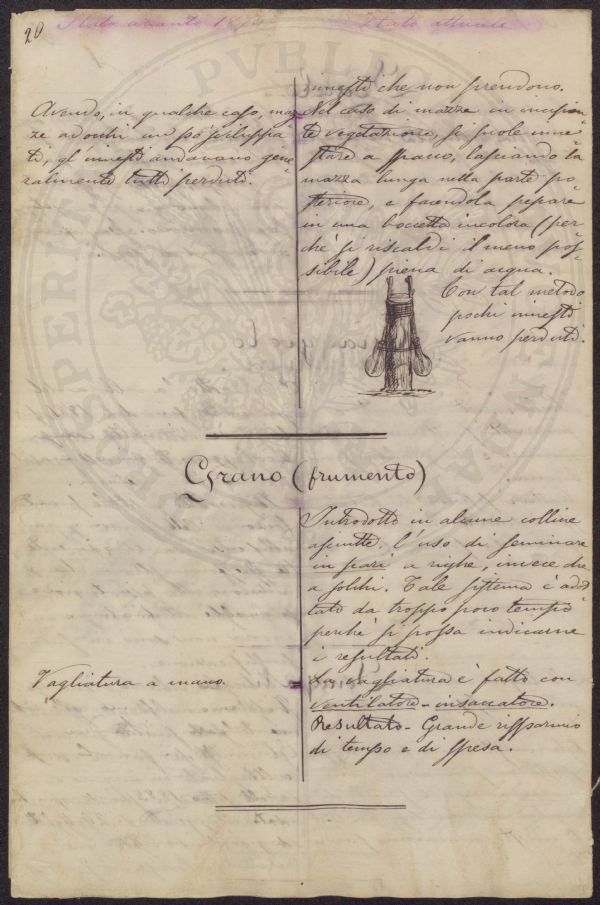 20
Stato avanti 18
Stato attuale
Avendo, in qualche caso, maz-
ze ad occhi un pò sviluppa-
ti, gl'innesti andavano gene-
ralmente tutti perduti.
innesti che non prendono.
Nel caso di mazze in incipien-
te vegetazione, si suole inne-
stare a spacco, lasciando la
mazza lunga nella parte po-
steriore, e facendola pescare
in una boccetta incolora (per-
chè si riscaldi il meno pos-
sibile) piena di acqua.
Con tal metodo
pochi innesti
vanno perduti.
Grano (frumento)
Introdotto in alcune colline
asciutte, l'uso di seminare
in pari a righe, invece che
a solchi. Tale sistema è adot-
tato da troppo poco tempo
perchè si possa indicarne
i resultati.
Vagliatura a mano.
La vagliatura è fatta con
ventilatore-insaccatore.
Resultato - Grande risparmio
di tempo e di spesa.